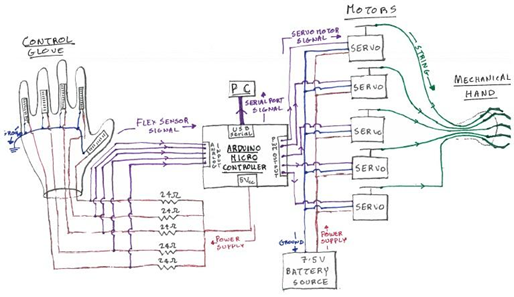 CONTROL
GLOVE
FLEX SENSOR
SIGNAL
24Ω
24Ω
24Ω
24Ω
24Ω
POWER
SUPPLY
PC
SERIAL PORT
SIGNAL
USB
SERIAL
ANALOG
INPUT
ARDUINO
MICRO
CONTROLLER
5Vcc
PWM OUTPUT
SERVO MOTOR
SIGNAL
MOTORS
SERVO
SERVO
SERVO
SERVO
SERVO
STRING
MECHANICAL
HAND
GROUND
POWER
SUPPLY
7.5V
BATTERY
SOURCE